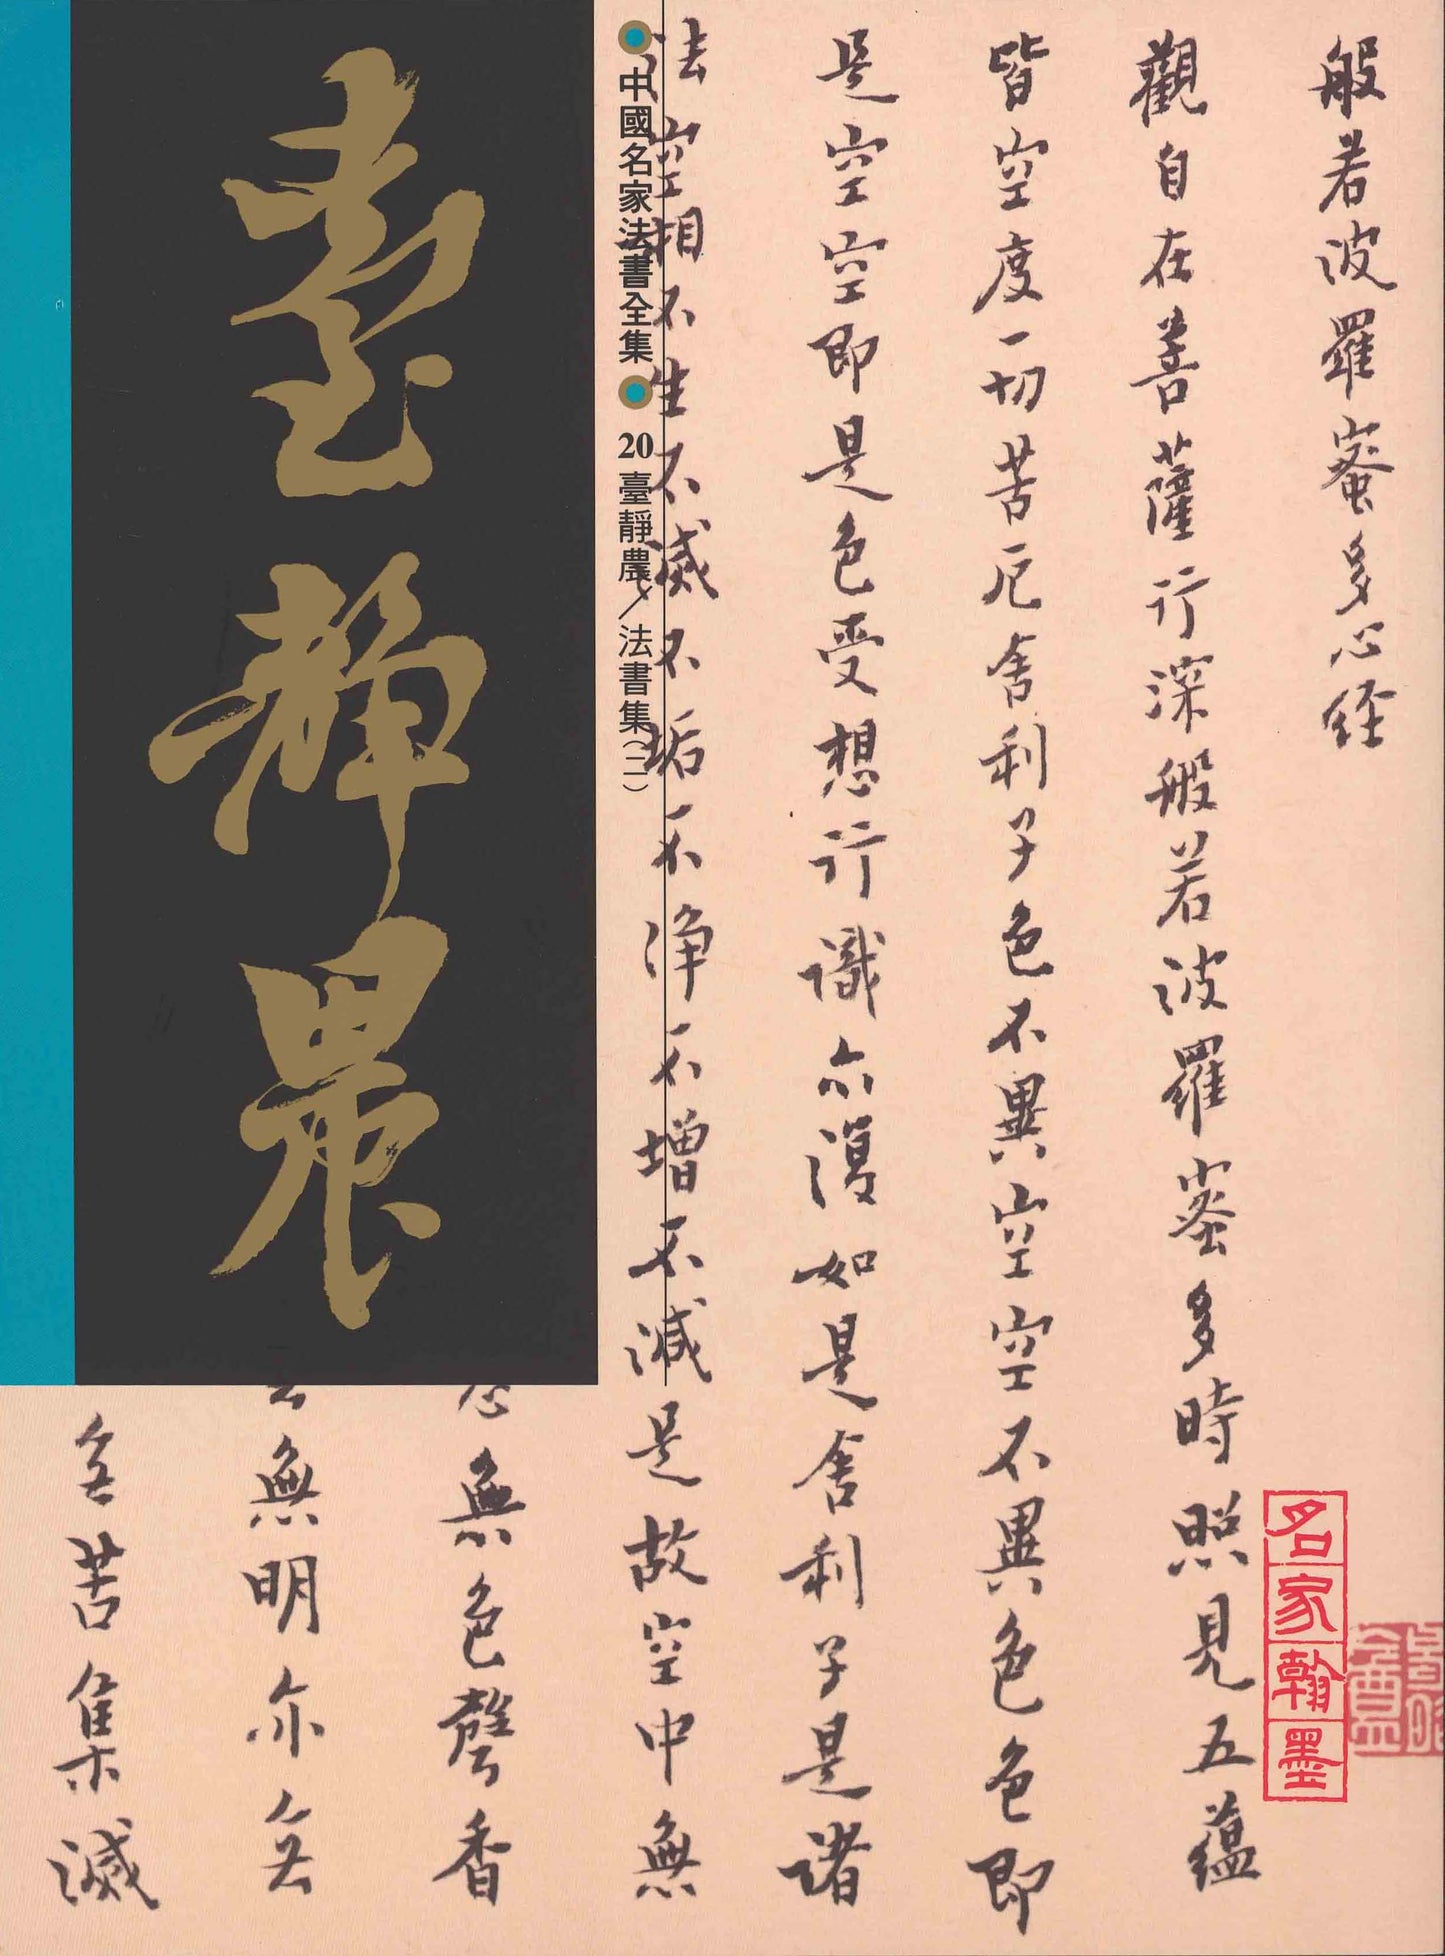 般若波羅蜜多心經
觀自在菩薩行深般若波羅蜜多時照見五蘊
皆空度一切苦厄舍利子色不異空空不異色色即
是空空即是色受想行識亦復如是舍利子是諸
法空相不生不滅不垢不淨不增不減是故空中無
無色聲香
無明亦无
苦集滅
中國名家法書全集
20 臺靜農/法書集(二)
臺靜農
名家翰墨